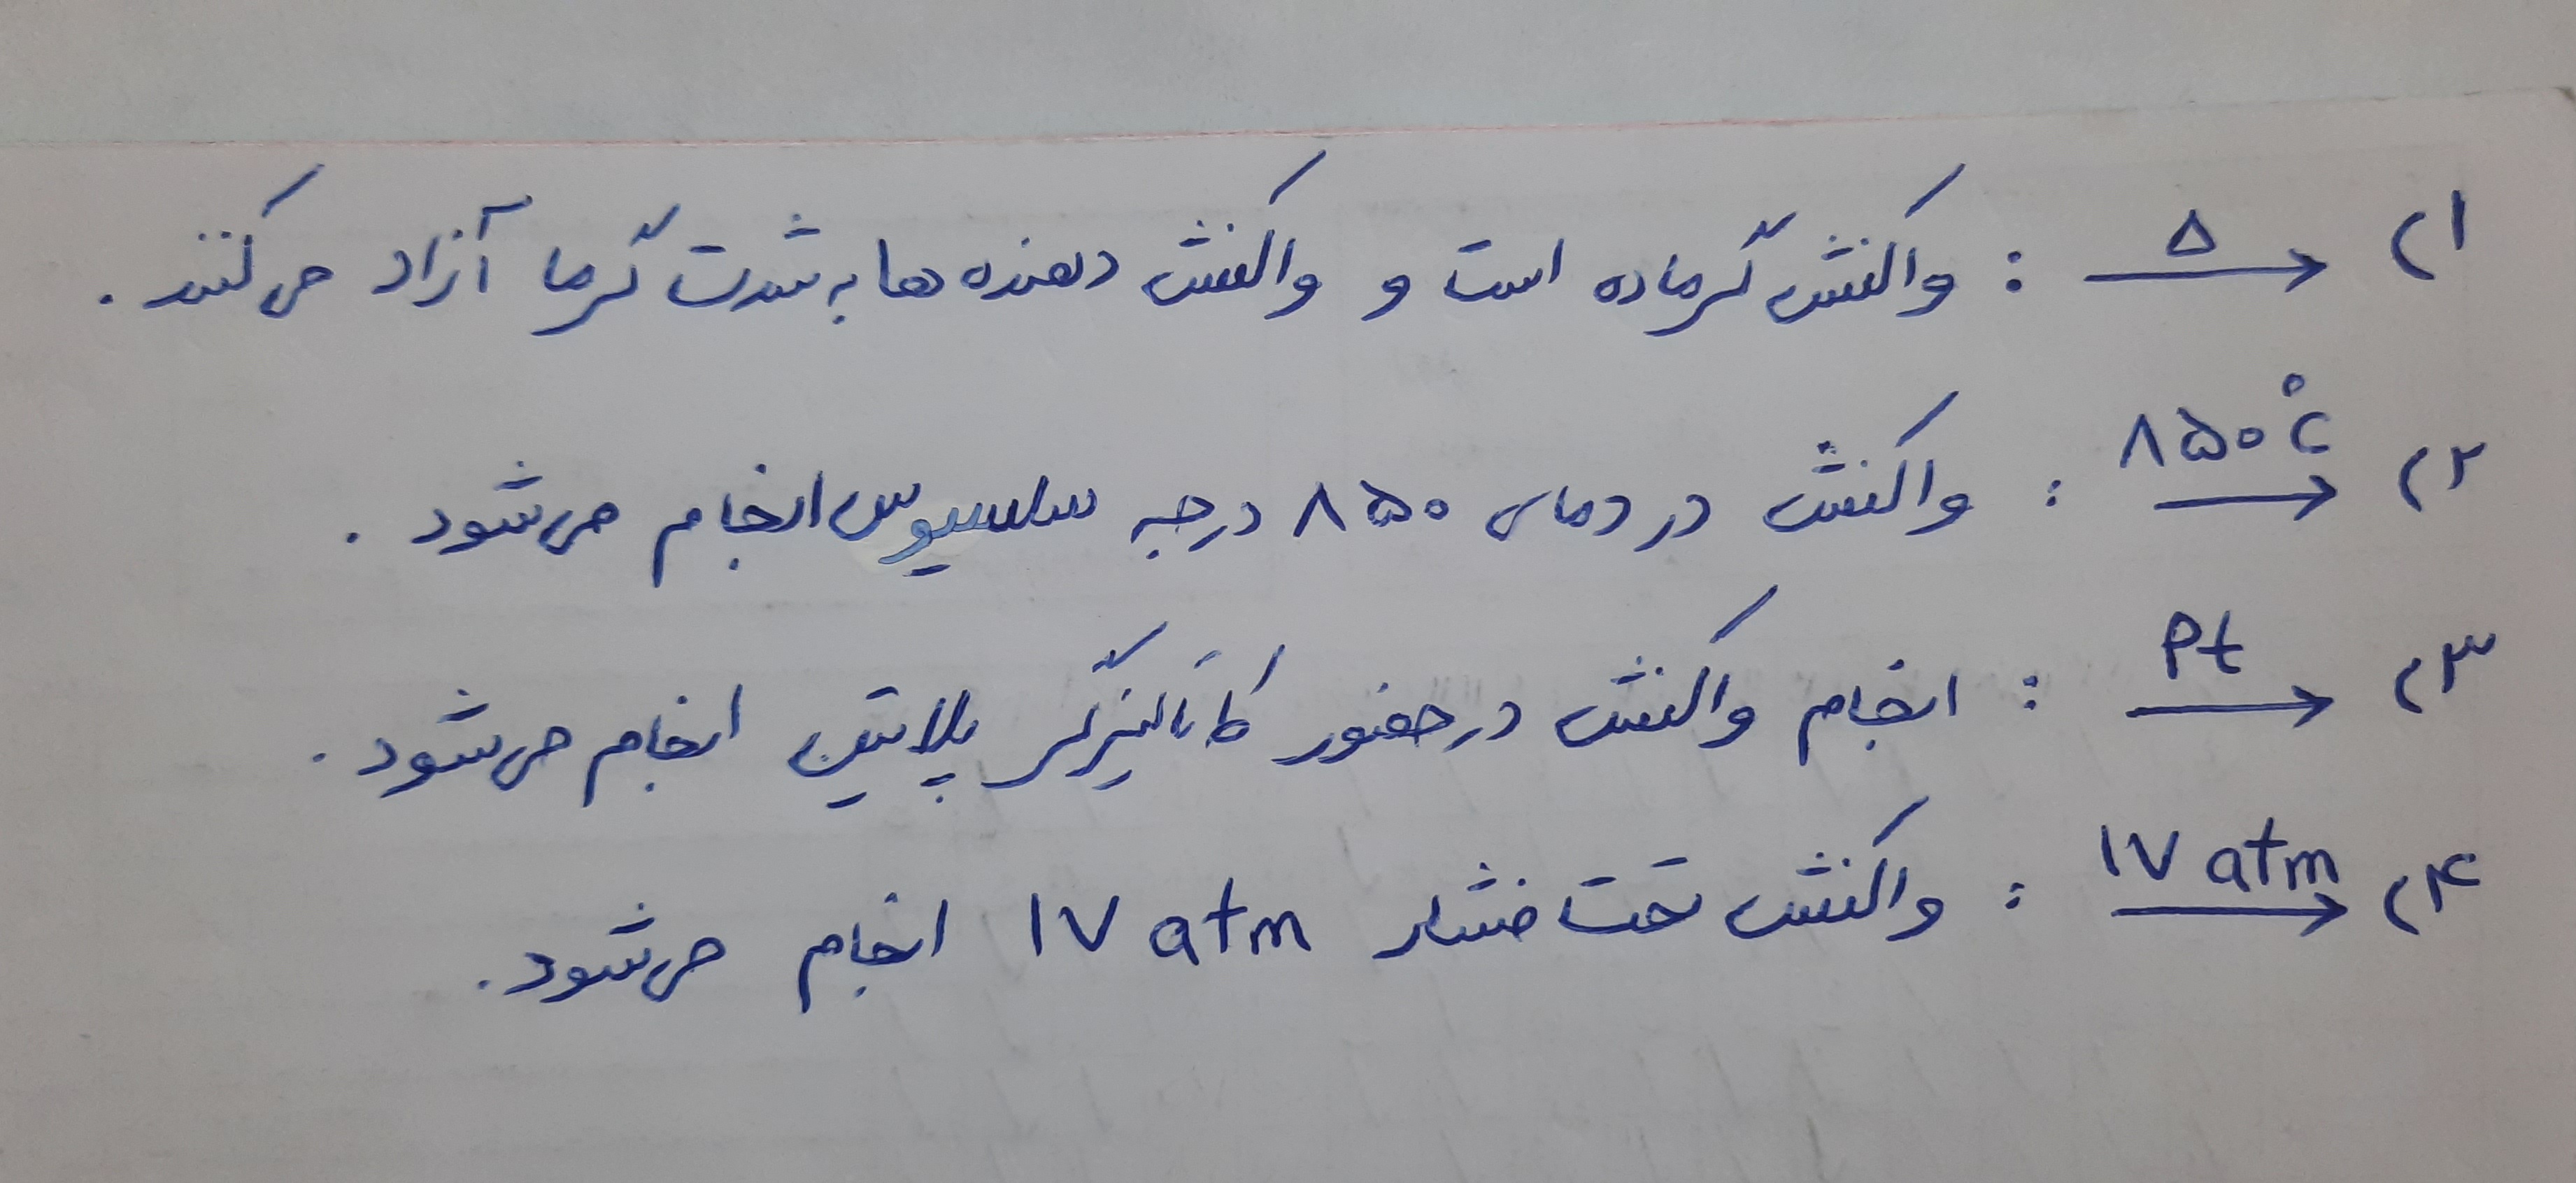 ۱) Δ→ : واکنش گرماده است و واکنش دهنده ها به شدت گرما آزاد می کنند .
۲) ۸۵۰°C→ : واکنش در دمای ۸۵۰ درجه سلسیوس انجام می شود .
۳) Pt→ : انجام واکنش در حضور کاتالیزگر پلاتین انجام می شود .
۴) ۱۷ atm→ : واکنش تحت فشار ۱۷ atm انجام می شود .